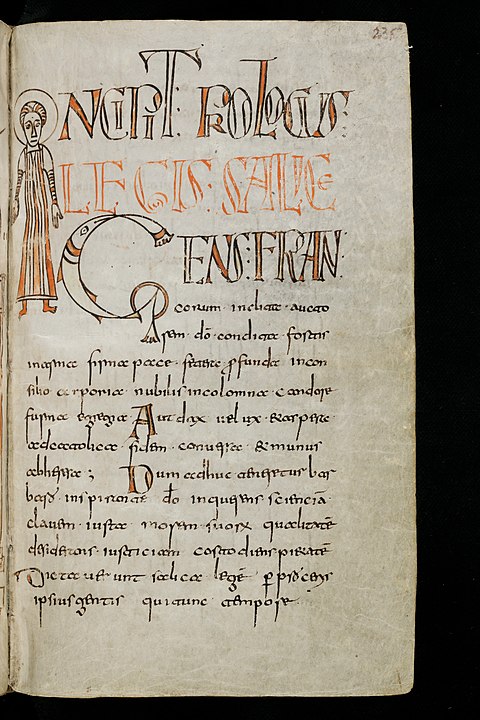 235
INCIPIT PROLOGUS:
LEGIS: SALICE
GENS: FRAN
corum · inclita · aucto
rem · dō · condita · fortis
in arma firma pace · profunda in con
silio corporia nubilis incolomna candore
furma egregia Audax velux et aspera
ad catolica fidem conversa & munus
ab heresa; Dum adhuc teneretus bar
baro inspirante dō inquerens sciencia
clavem iusta morem suorꝝ qualitatē
desiderans iusticiam costodiens pietatē
Dictaverunt salica legē
ipsius gentis qui tunc tempore